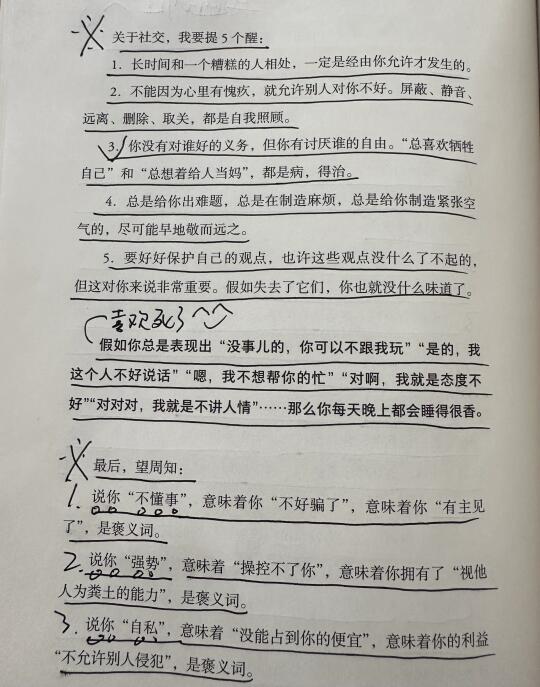 关于社交，我要提 5 个醒：
1. 长时间和一个糟糕的人相处，一定是经由你允许才发生的。
2. 不能因为心里有愧疚，就允许别人对你不好。屏蔽、静音、
远离、删除、取关，都是自我照顾。
3. 你没有对谁好的义务，但你有讨厌谁的自由。“总喜欢牺牲
自己”和“总想着给人当妈”，都是病，得治。
4. 总是给你出难题，总是在制造麻烦，总是给你制造紧张空
气的，尽可能早地敬而远之。
5. 要好好保护自己的观点，也许这些观点没什么了不起的，
但这对你来说非常重要。假如失去了它们，你也就没什么味道了。
喜欢死了
假如你总是表现出“没事儿的，你可以不跟我玩”“是的，我
这个人不好说话”“嗯，我不想帮你的忙”“对啊，我就是态度不
好”“对对对，我就是不讲人情”……那么你每天晚上都会睡得很香。
最后，望周知：
1. 说你“不懂事”，意味着你“不好骗了”，意味着你“有主见
了”，是褒义词。
2. 说你“强势”，意味着“操控不了你”，意味着你拥有了“视他
人为粪土的能力”，是褒义词。
3. 说你“自私”，意味着“没能占到你的便宜”，意味着你的利益
“不允许别人侵犯”，是褒义词。